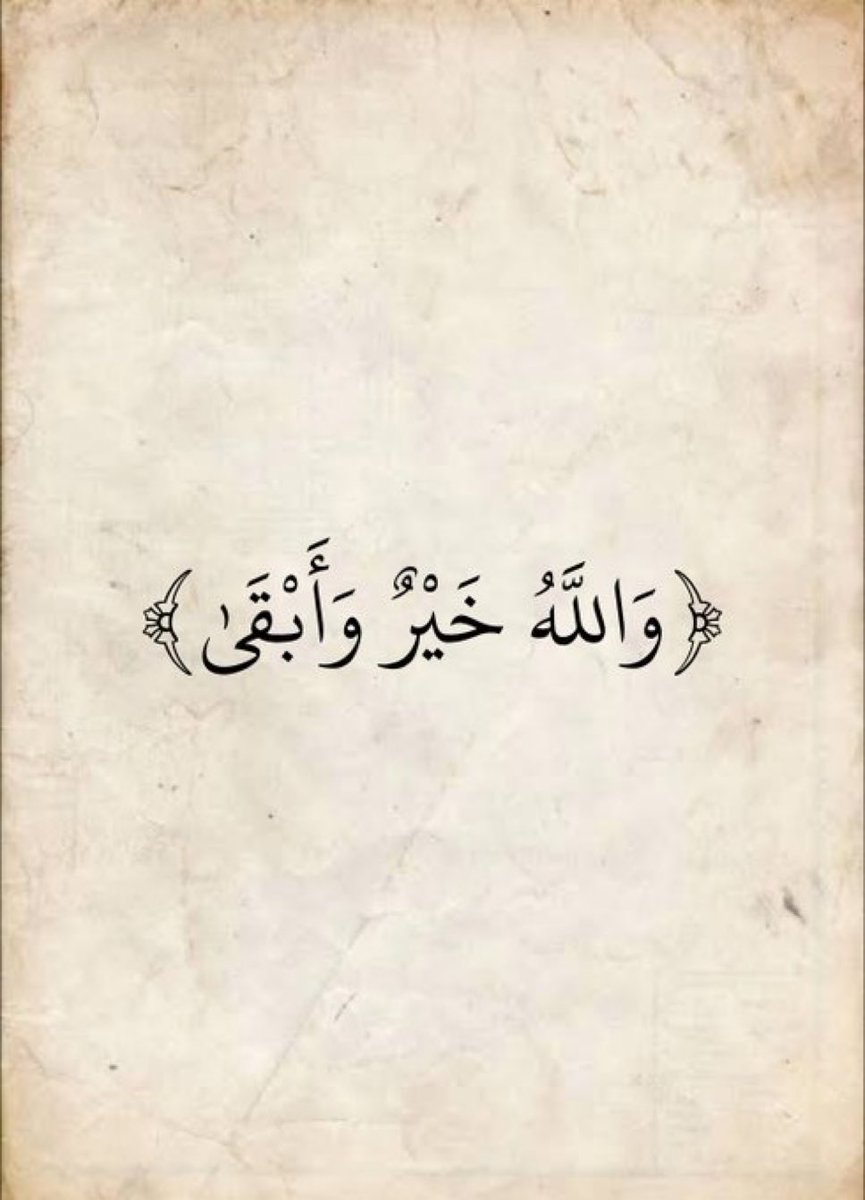 ﴿وَاللَّهُ خَيْرٌ وَأَبْقَىٰ﴾